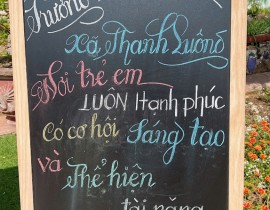 Trường
Xã Thanh Luông
Nơi trẻ em
LUÔN Hạnh phúc
Có cơ hội Sáng tạo
và
Thể hiện
tài năng